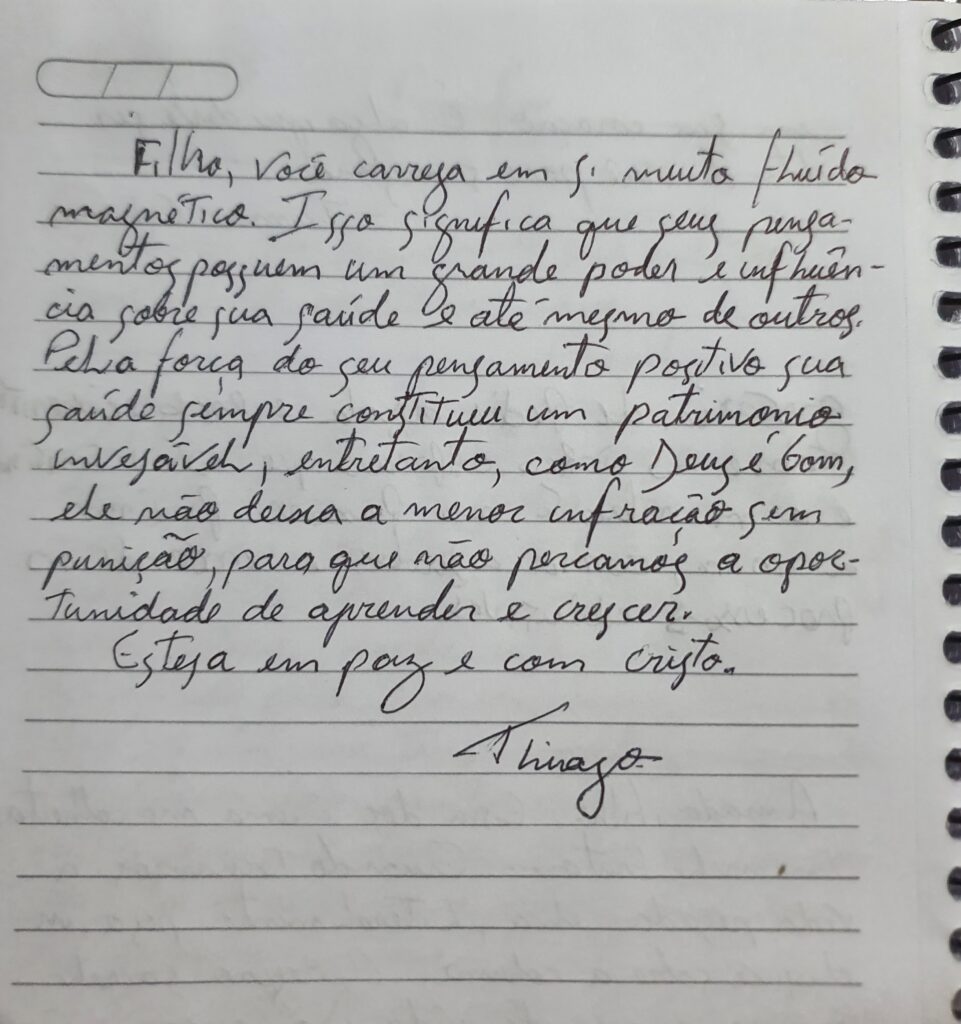 Filho, você carrega em si muito fluído
magnético. Isso significa que seus pensa-
mentos possuem um grande poder e influên-
cia sobre sua saúde e até mesmo de outros.
Pela força do seu pensamento positivo sua
saúde sempre constituiu um patrimônio
invejável, entretanto, como Deus é bom,
ele não deixa a menor infração sem
punição, para que não percamos a opor-
tunidade de aprender e crescer.
Esteja em paz e com cristo.
Thiago